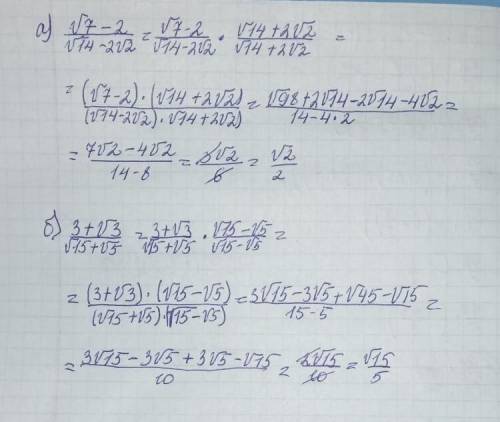 а) (√7-2)/(√14-2√2) = (√7-2)/(√14-2√2) · (√14+2√2)/(√14+2√2) =
= ((√7-2)·(√14+2√2))/((√14-2√2)·√14+2√2) = (√98+2√14-2√14-4√2)/(14-4·2) =
= (7√2-4√2)/(14-8) = 3√2/6 = √2/2
б) (3+√3)/(√15+√5) = (3+√3)/(√15+√5) · (√15-√5)/(√15-√5) =
= ((3+√3)·(√15-√5))/((√15+√5)·(√15-√5)) = (3√15-3√5+√45-√15)/(15-5) =
= (3√15-3√5+3√5-√15)/10 = 2√15/10 = √15/5